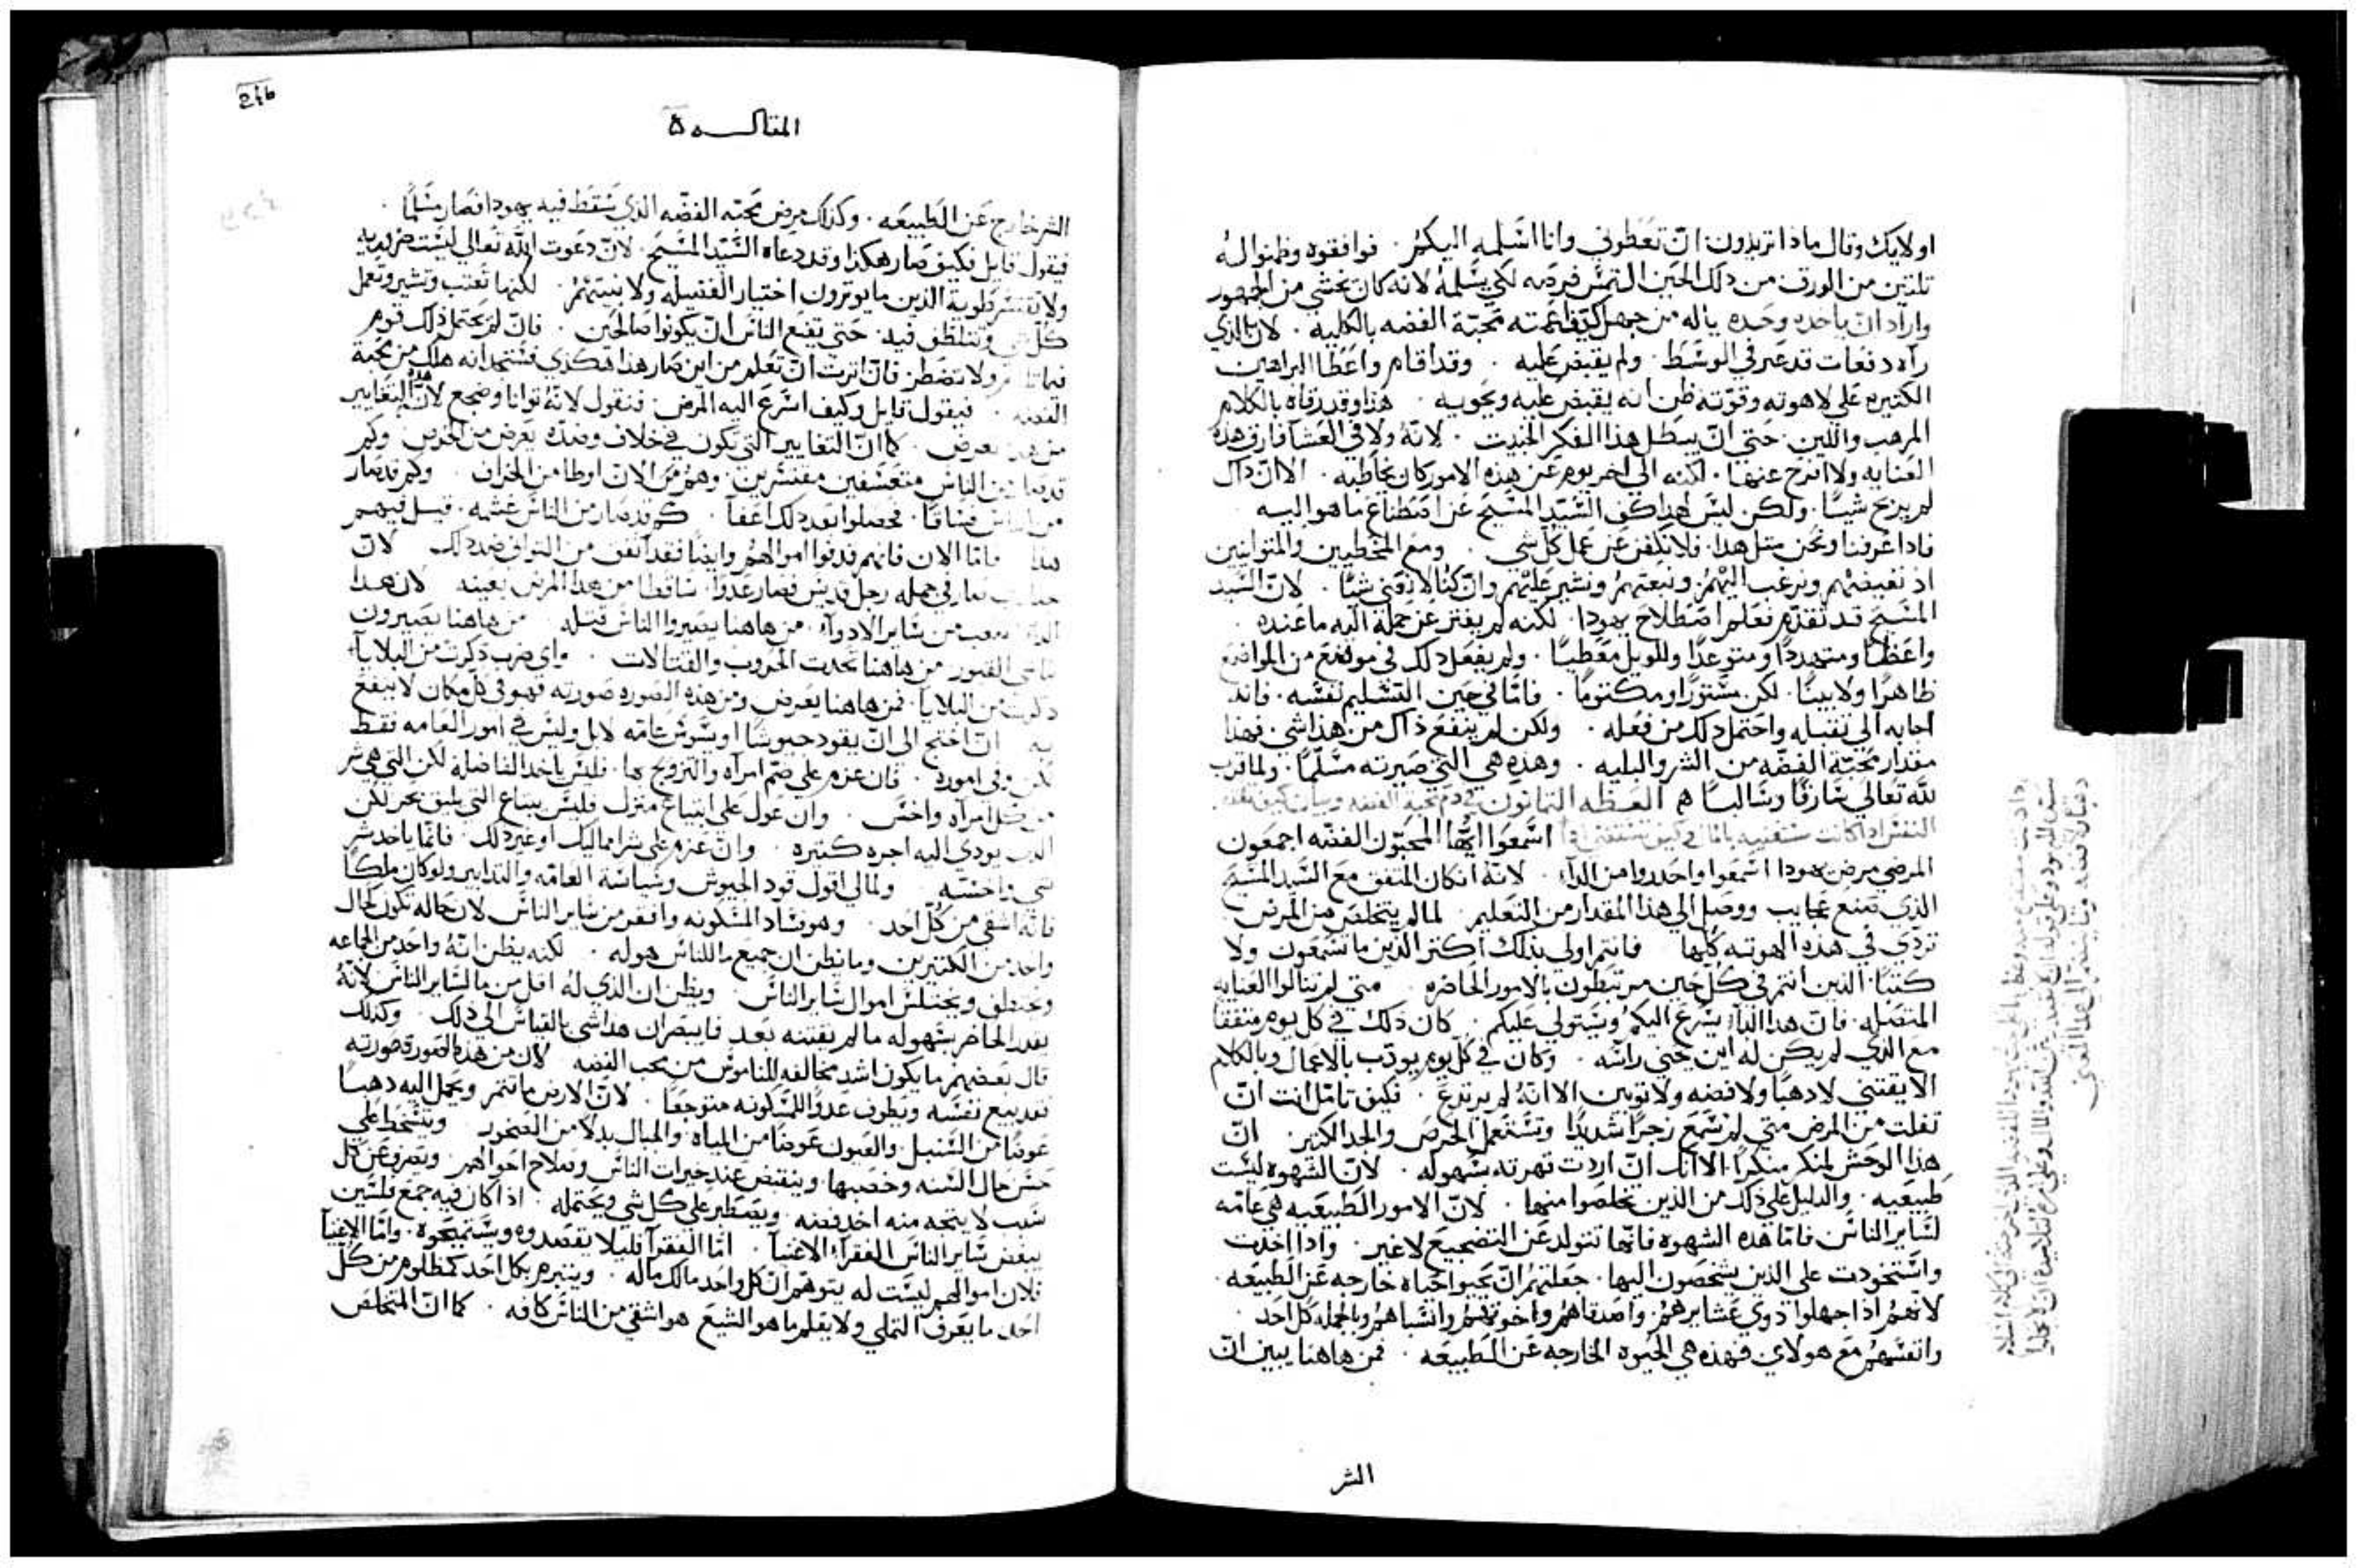 اولايك وقال ماذا تريدون ان تعطوني وانا اسلمه اليكم . فوافقوه وظنوا له
ثلثين من الورق من ذلك الحين التمس فرصه لكي يسلمه لانه كان يخشي من الجمهور
واراد ان ياخده وحده ياله من جهل كيف اعمته محبة الفضه بالكليه . لان الذي
راه دفعات قد عبر في الوسط . ولم يقبض عليه . وقد اقام واعطا البراهين
الكثيره علي لاهوته وقوته ظن انه يقبض عليه ويحويه . هذا وقد رقاه بالكلام
المرهب واللين . حتي ان يبطل هذا الفكر الخبيت . لانه ولا في العشا فارق هذه
العنايه ولا انتزح عنها . لكنه الي اخر يوم عن هذه الامور كان يخاطبه . الا ان داك
لم يربح شيا . ولكن ليس لهدا كف السيد المسيح عن اصطناع ما هو اليه
فادا عرفنا ونحن مثل هدا . فلا نكفن عن عمل كل شي . ومع المخطيين والمتوانيين
اذ نعبضهم ونرغب اليهم ونبعتهم ونشير عليهم وان كنا لا نفني شيا . لان السيد
المسيح قد تقدم فعلم اصطلاح يهودا . لكنه لم يفتر عن جملة اليه ما عنده .
واعظا ومتهددا ومتوعدا وللويل معطيا . ولم يفعل دلك في موضع من المواضع
ظاهرا ولا بينا . لكن مستورا ومكتوما . فاما في حين التسليم نفسه . فانه
اجابه الي تقبيله واحتمل دلك من فعله . ولكن لم ينفع ذاك من هذا شي . فهذا
مقدار محبة الفضه من الشر والبليه . وهذه هي التي صيرته مسلما . ولما قرب
لله تعالي سارقا وسالبا هم العظه التمانون في دم محبة الفضه
اسمعوا ايها المحبون الفضه اجمعون
المرضي مرض يهودا اسمعوا واحدروا من الدآ . لانه ان كان المتفق مع السيد المسيح
الذي صنع عجايب ووصل الي هذا المقدار من التعليم . لما لم يتخلص من المرض
تردي في هذه الهوته كلها فانتم اولي بذلك اكتر الذين ما تسمعون ولا
كتبا . الذين انتم في كل حين مرتبطون بالامور الحاضره . متي لم تنالوا العنايه
المتصله . فان هدا الدآ يسرع اليكم ويستولي عليكم . كان ذلك في كل يوم متفقا
مع الذي لم يكن له اين يحني راسه . وكان في كل يوم يودب بالاعمال وبالكلام
الا يقتني لا دهبا ولا فضه ولا توبين الا انه لم يرتدع . فكيف تامل انت ان
تفلت من المرض متي لم تسمع زجرا شديدا وتستعمل الحرص والجد الكتير . ان
هدا الوحش لمنكر منكرا . الا انك ان اردت قهرته بسهوله . لان الشهوه ليست
طبيعيه . والدليل علي ذلك من الذين تخلصوا منها . لان الامور الطبيعيه هي عامه
لساير الناس فاما هده الشهوه فانها تتولد عن التضجيع لا غير . وادا اخدت
واستحودت علي الذين يشخصون اليها . جعلتهم ان يحيوا حياه خارجه عن الطبيعه .
لانهم اذا جهلوا ذوي عشايرهم . واصدقاهم واخوتهم وانسباهم وبالجمله كل احد .
وانفسهم مع هولاي فهذه هي الحيوه الخارجه عن الطبيعه . فمن هاهنا يبين ان
الشر
246
المقاله
الشر خارج عن الطبيعه . وكذلك مرض محبه الفضه الذي سقط فيه يهودا فصار مسلما .
فيقول قايل فكيف صار هكذا وقد دعاه السيد المسيح . لان دعوت الله تعالي ليست ضروريه
ولا تقتسر طوية الذين ما يوترون اختيار الفضيله ولا نيتهم . لكنها تعتب وتشير وتعمل
كل شي وتتلطف فيه . حتي تقنع الناس ان يكونوا صالحين . فان لم يحتمل ذلك قوم
ولا تضطر فان اترت ان تعلم من اين صار هذا هكذي فستجد انه هلك من محبة
الفضه . فيقول قايل وكيف اسرع اليه المرض . فنقول لانه توانا وضجع لان التغايير
من هدا تعرض . كما ان التغايير التي تكون في خلاف وضده يعرض من الحرص . وكم
من الناس متعسفين مقتسرين . وهم من الان اوطا من الخراف . وكم قد صار
من الناس فساقا . فحصلوا بعد دلك اعفآ . كم قد صار من الناس غشمه . قيل فيهم
هذا فاما الان فانهم بدلوا اموالهم وايضا فقد اتفق من التواني ضد دلك . لان
في جمله رجل قديس فصار عدوا . ساقطا من هدا المرض بعينه لان هدا
اصعب من ساير الادوآ . من هاهنا يصيروا الناس قتله من هاهنا يصيرون
نابشي القبور من هاهنا تحدت الحروب والقتالات . واي ضرب دكرت من البلايآ
دكرت من البلايا . فمن هاهنا يعرض ومن هذه الصوره صورته فهو في كل مكان لا ينفع
به ان احتج الي ان يقود جيوشا او يسوس عامه لا بل وليس في امور العامه فقط
لكن وفي اموره . فان عزم علي ضم امراه والتزويج بها . فليس ياخد الفاضله لكن التي هي شر
من كل امراه واخس . وان عول علي ابتياع منزل فليس يبتاع التي يليق بحر لكن
الدي يودي اليه اجره كتيره . وان عزم علي شرا مماليك او غير دلك . فانما ياخد شر
شي واخسه . ولمالي اقول قود الجيوش وسياسة العامه والتدابير ولو كان ملكا
فانه اشقي من كل احد . وهو فساد المسكونه وافقر من ساير الناس لان حاله تكون كحال
واحد من الكتيرين وما يظن ان جميع ما للناس هو له . لكنه يظن انه واحد من الجماعه
ويختطف ويختلس اموال ساير الناس . ويظن ان الذي له اقل من مال ساير الناس لانه
يقدر الحاضر بشهوله ما لم يقتنه بعد فما يبصر ان هدا شي بالقياس الي دلك . وكذلك
قال بعضهم ما يكون اشد مخالفه للناموس من محب الفضه لان من هذه الصوره صورته
فقد يبيع نفسه ويطوف عدوا للمسكونه متوجعا . لان الارض ما تتمر ويحمل اليه دهبا
عوضا من السنبل . والعيون عوضا من المياه والجبال بدلا من الصخور . ويتسخط علي
حسن حال السنه وخصبها . وينقبض عند خيرات الناس وصلاح احوالهم . ويصرف عن كل
سبب لا يتجه منه اخد فضه . ويصطبر علي كل شي ويحتمله . ادا كان فيه جمع فلسين
يبغض ساير الناس الفقرآ والاغنيآ . اما الفقرآ فليلا يقصدوه ويستميحوه . واما الاغنيآ
فلان اموالهم ليست له يتوهم ان كل واحد مالك ماله . ويتبرم بكل احد كمظلوم من كل
احد ما يعرف التملي ولا يعلم ما هو الشبع هو اشقي من الناس كافه . كما ان المتخلص